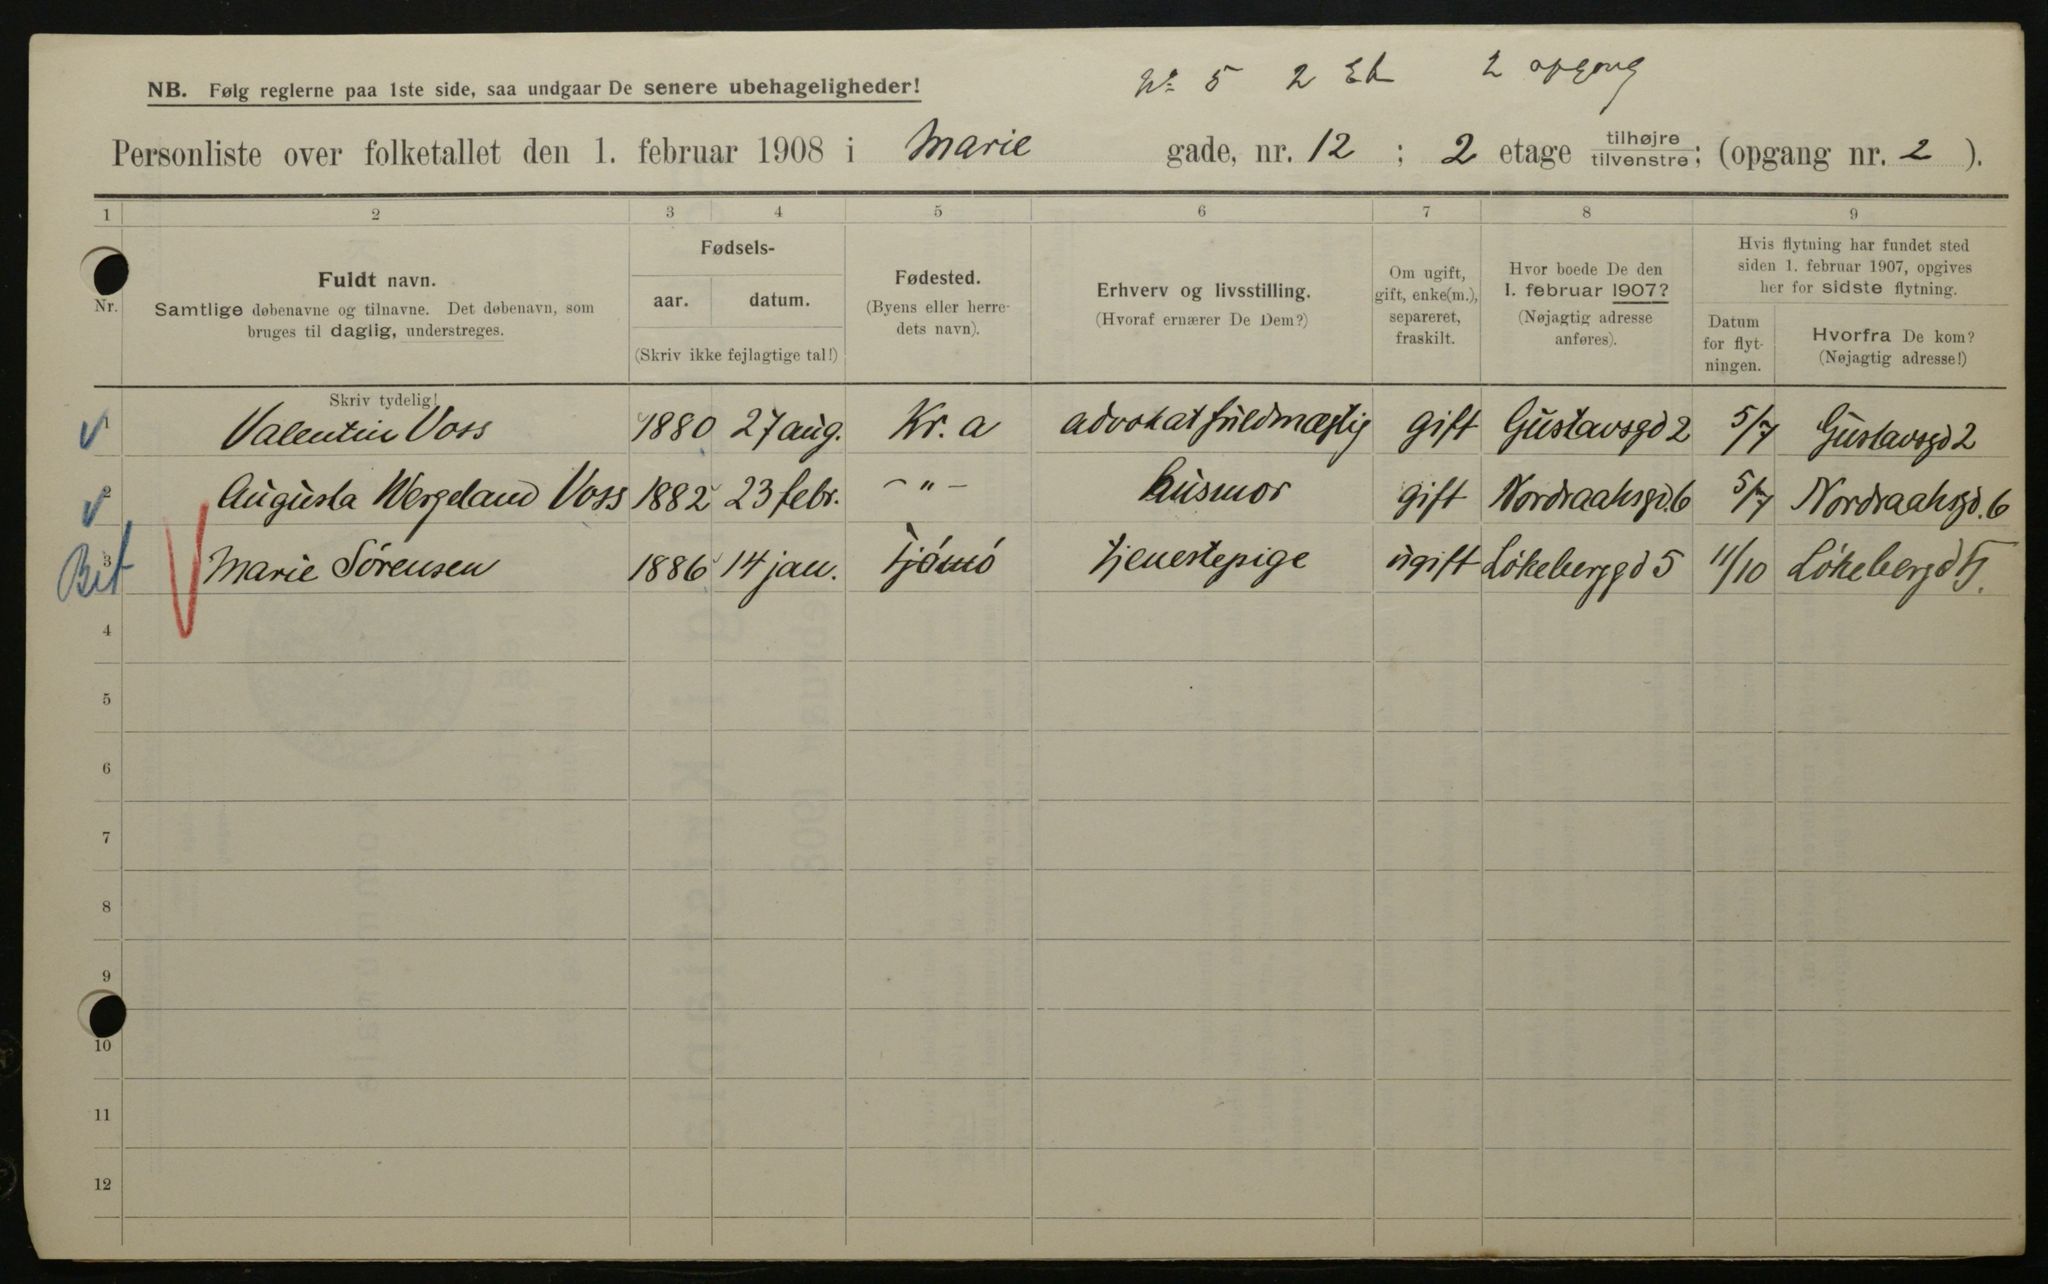 Nº 5 2 Et 2 opgang
NB. Følg reglerne paa 1ste side, saa undgaar De senere ubehageligheder!
Personliste over folketallet den 1. februar 1908 i Marie gade, nr. 12 ; 2 etage tilhøjre tilvenstre; (opgang nr. 2 ).
1 2 3 4 5 6 7 8 9
Nr.
Fuldt navn.
Samtlige døbenavne og tilnavne. Det døbenavn, som
bruges til daglig, understreges.
Skriv tydelig!
Fødsels-
aar. datum.
(Skriv ikke fejlagtige tal!)
Fødested.
(Byens eller herre-
dets navn).
Erhverv og livsstilling.
(Hvoraf ernærer De Dem?)
Om ugift,
gift, enke(m.),
separeret,
fraskilt.
Hvor boede De den
1. februar 1907?
(Nøjagtig adresse
anføres).
Hvis flytning har fundet sted
siden 1. februar 1907, opgives
her for sidste flytning.
Datum
for flyt-
ningen.
Hvorfra De kom?
(Nøjagtig adresse!)
1 Valentin Voss 1880 27 aug. Kr. a advokatfuldmægtig gift Gustavsgd 2 5/7 Gustavsgd 2
2 Augusta Wergeland Voss 1882 23 febr. - " - husmor gift Nordraaksgd. 6 5/7 Nordraaksgd. 6
Bet 3 Marie Sørensen 1886 14 jan. Tjømø tjenestepige ugift Løkeberggd 5 11/10 Løkebergd 5.
4
5
6
7
8
9
10
11
12